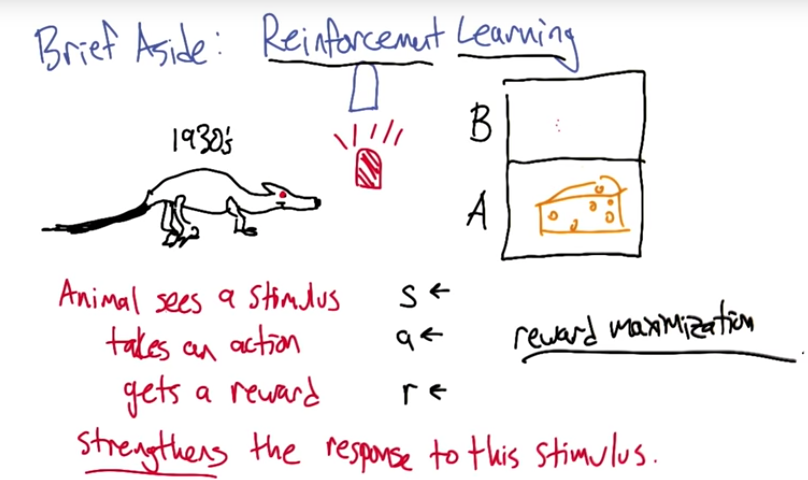 Brief Aside: Reinforcement Learning
1930's
B
A
Animal sees a stimulus s ←
takes an action a ←
reward maximization
gets a reward r ←
strengthens the response to this stimulus.